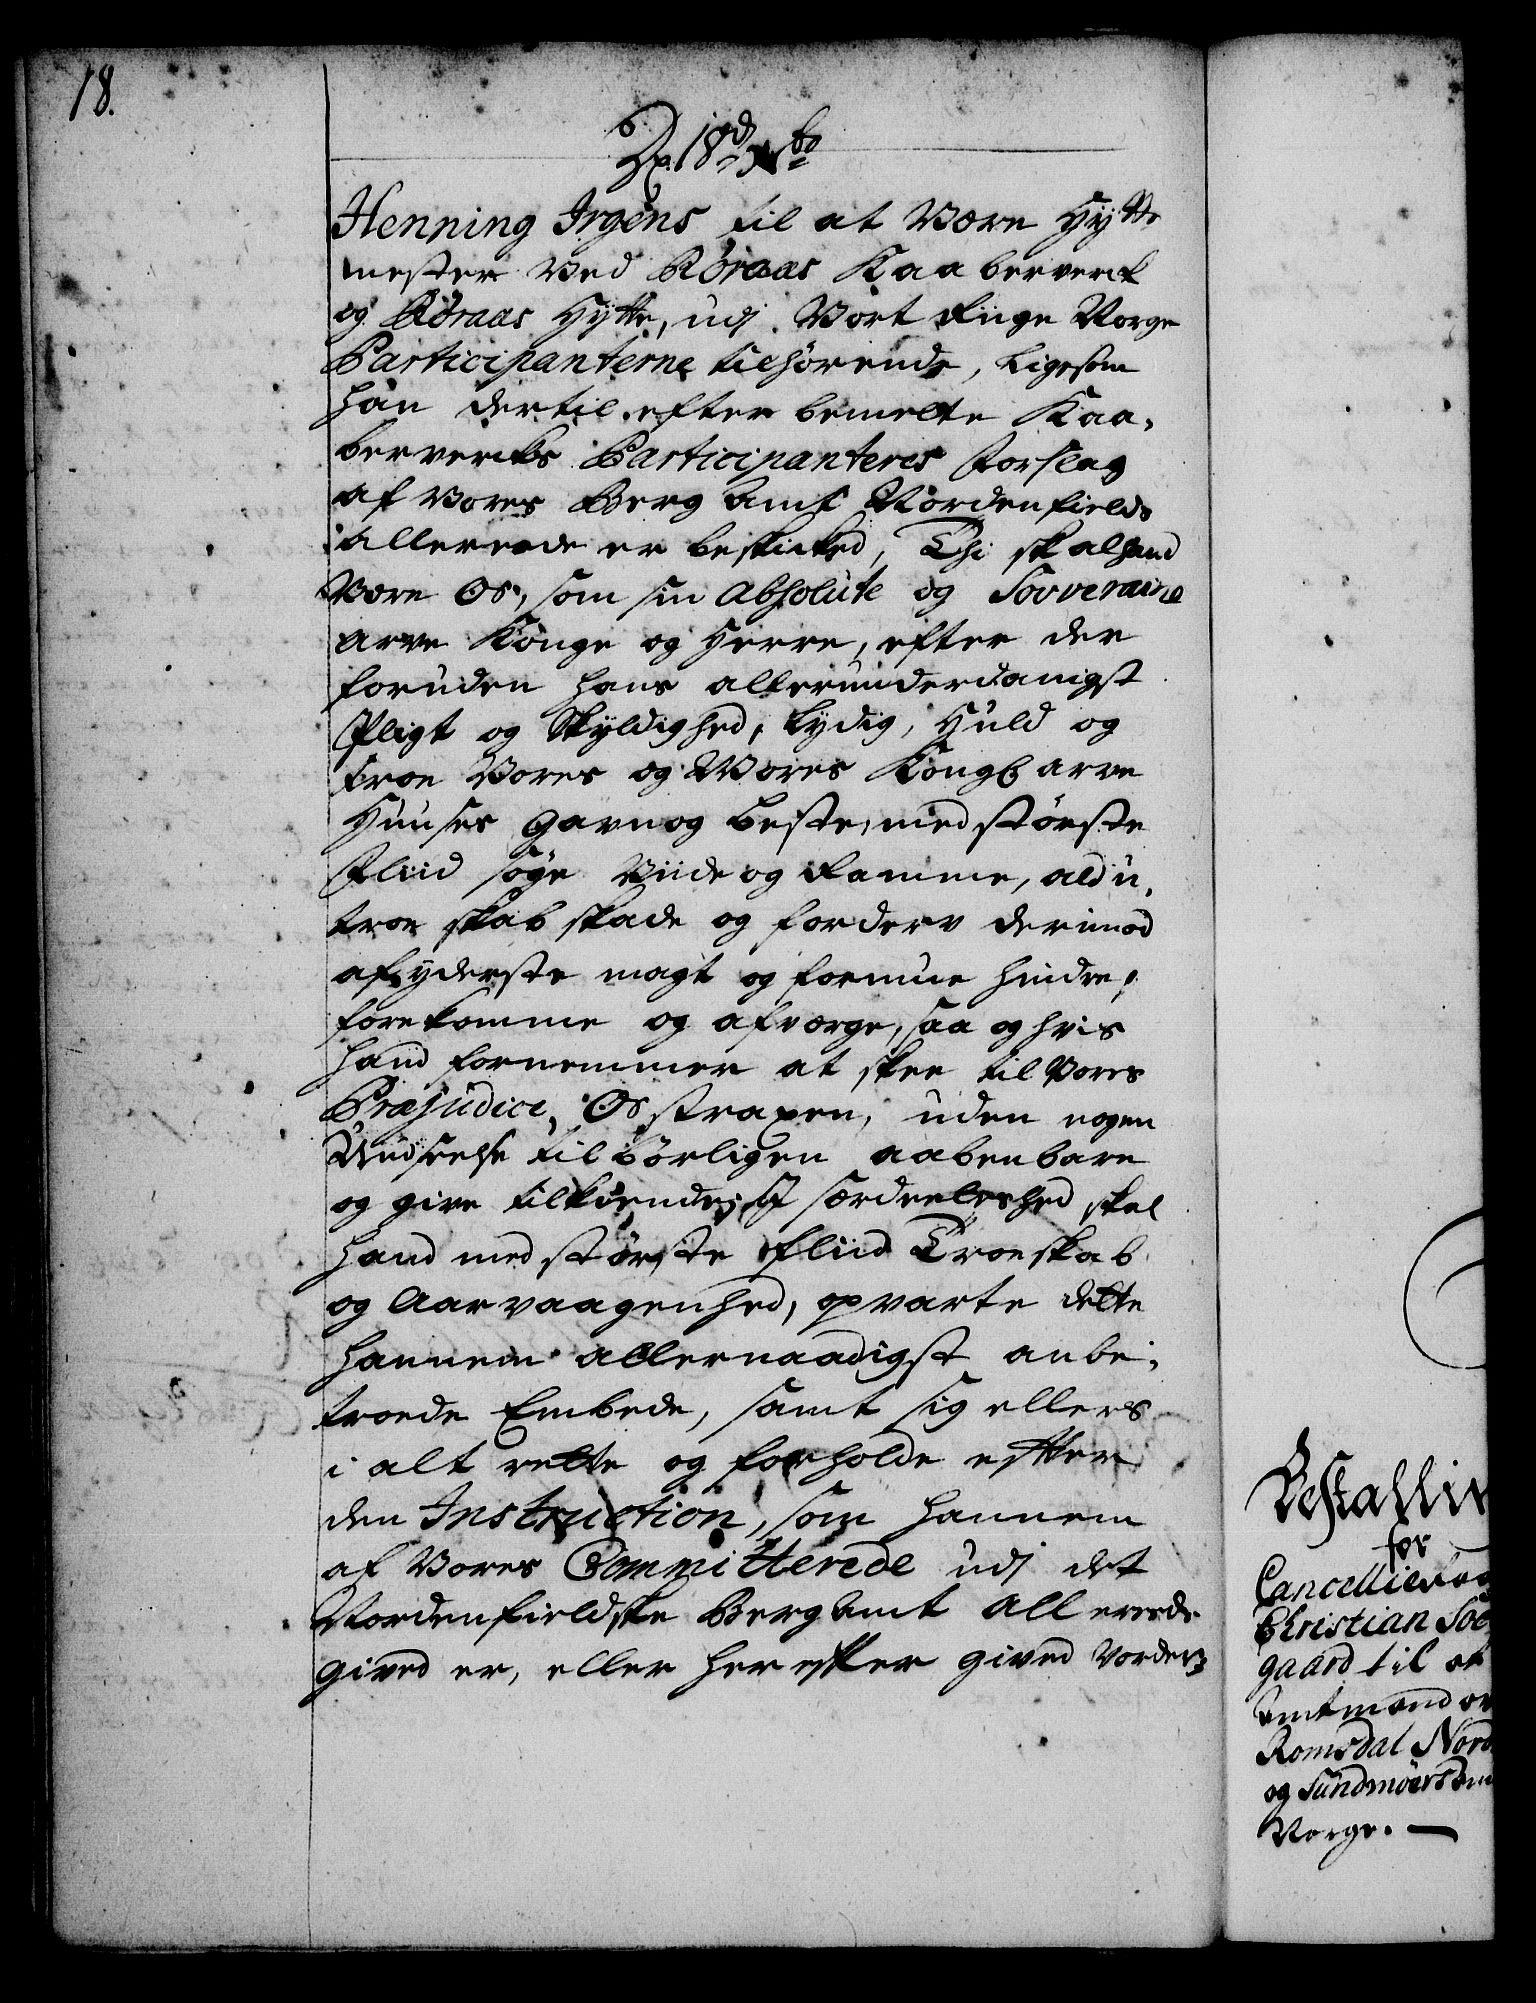 18.
D. 18 d Xbr
Henning Irgens til at være Hytte
mester ved Røraas Kaaberverck
og Røraas Hytte, udj Vort Riige Norge
Participanterne tilhørende, ligesom
han dertil efter bemelte Kaa-
berverckes Participanteres Forslag
af Vores Berg Amt Nordenfields
allereede er beskicked, Thi skal hand
være Os, som sin Absolute og Souveraine
arve Konge og Herre, efter der
foruden hans allerunderdanigst
Pligt og Skyldighed, lydig, Huld og
troe Vores og Vores Kongl: arve
Huuses gavn og beste, med største
Fliid søge viide og ramme, ald u-
troeskab skade og forderv derimod
af yderste magt og formue hindre,
forekomme og afværge, saa og hvis
hand fornemmer at skee til Vores
Præjudice, Os straxen, uden nogen
Undseelse tilbørligen aabenbare
og give tilkiende; I særdeeleshed skal
hand med største Fliid Troeskab
og Aarvaagenhed, opvarte dette
hannem allernaadigst anbe-
troede Embede, samt sig ellers
i alt rette og forholde efter
den Instruction, som hannem
af Vores Committerede udj det
Nordenfieldske Bergamt allereede
gived er, eller herefter gived vorder,
Bestallin
for
Cancellieraa
Christian Soel
gaard til at
Amtmand ov
Romsdal Nord
og Sundmøers Am
Norge. —